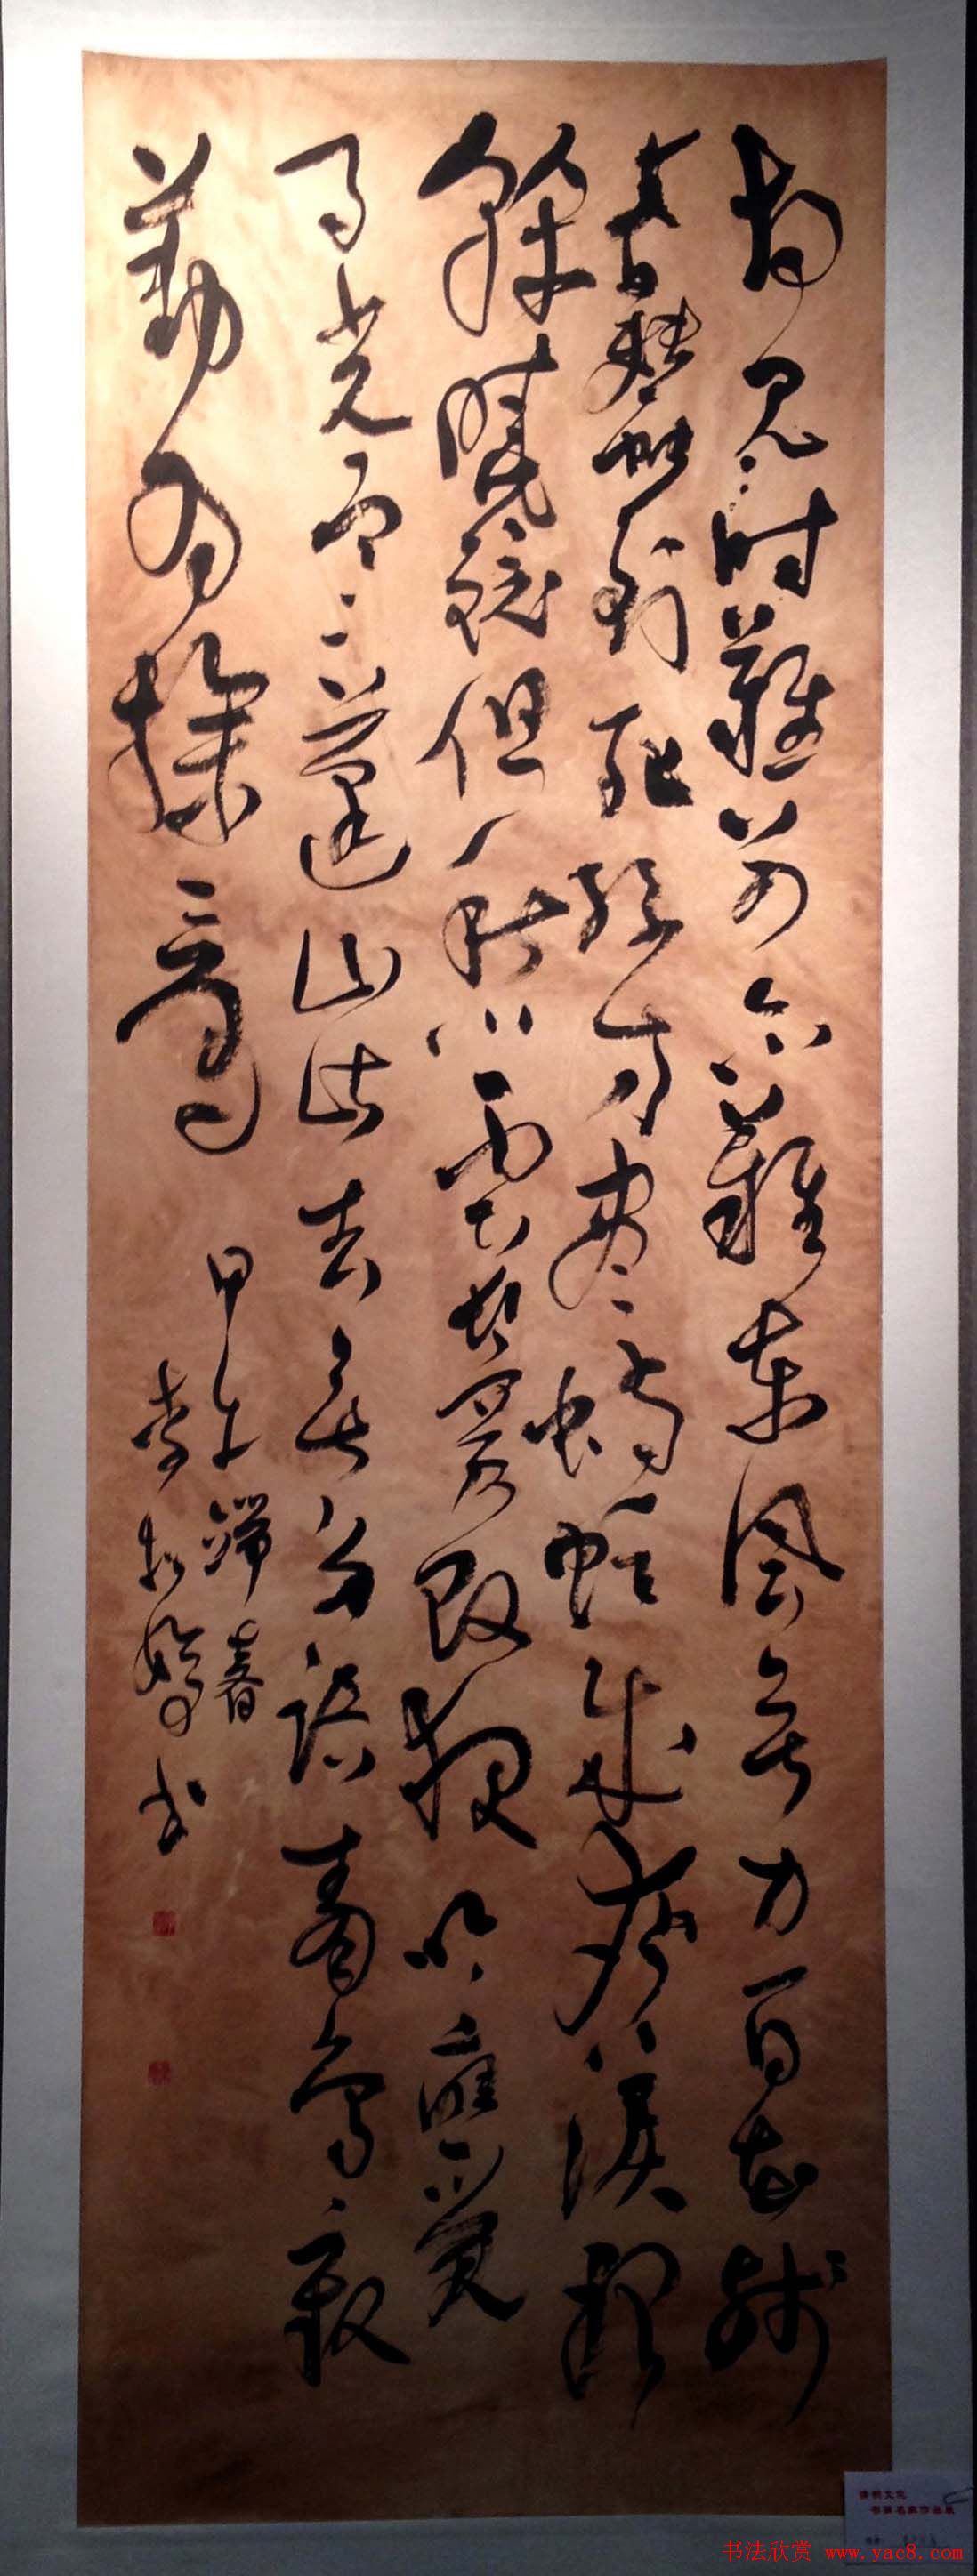 相見时難別亦難東風無力百花殘
春蠶到死絲方盡蠟炬成灰淚始
乾曉鏡但愁雲鬢改夜吟應覺
月光寒蓬山此去無多路青鳥殷
勤為探看
甲午
李 书
书画名家作品展
书法欣赏 www.yac8.com